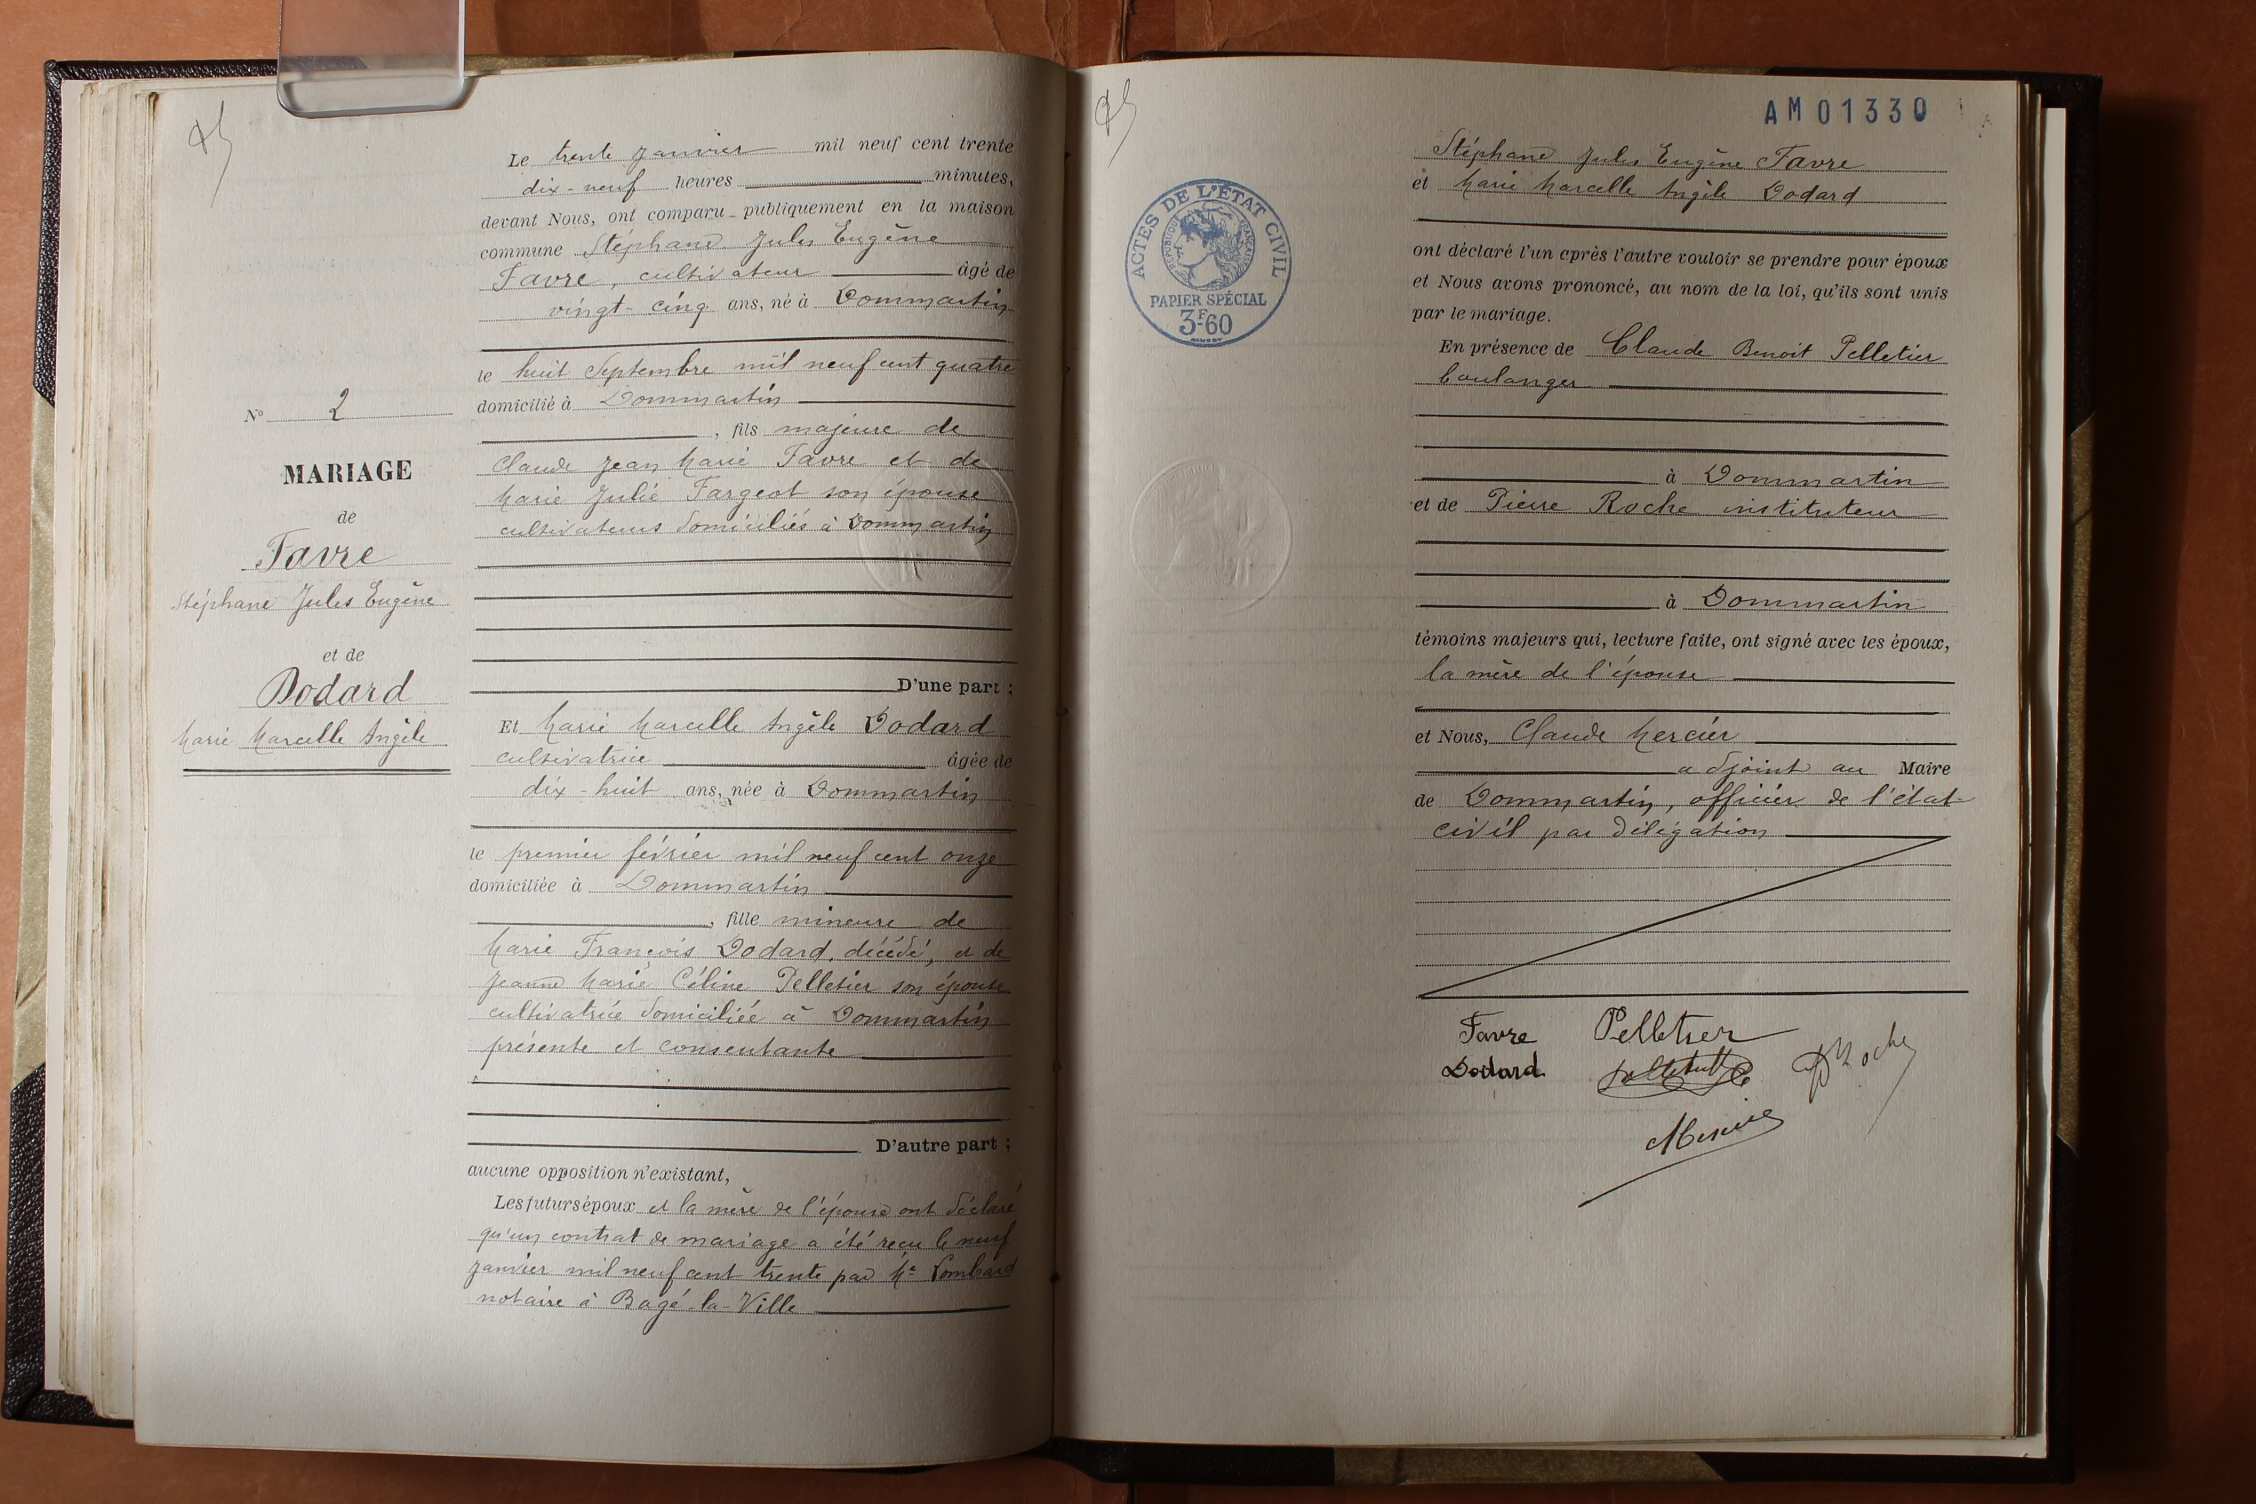 N° 2
MARIAGE
de
Favre
Stéphane Jules Eugène
et de
Dodard
Marie Marcelle Angèle
Le trente Janvier mil neuf cent trente
dix-neuf heures minutes,
devant Nous, ont comparu publiquement en la maison
commune Stéphane Jules Eugène
Favre, cultivateur âgé de
vingt-cinq ans, né à Dommartin
le huit Septembre mil neuf cent quatre
domicilié à Dommartin
, fils majeure de
Claude Jean Marie Favre et de
Marie Julie Fargeot son épouse
cultivateurs domiciliés à Dommartin
D'une part ;
Et Marie Marcelle Angèle Dodard
cultivatrice âgée de
dix-huit ans, née à Dommartin
le premier février mil neuf cent onze
domiciliée à Dommartin
, fille mineure de
Marie François Dodard, décédé, et de
Jeanne Marie Céline Pelletier son épouse
cultivatrice domiciliée à Dommartin
présente et consentante
D'autre part ;
aucune opposition n'existant,
Les futurs époux et la mère de l'épouse ont déclaré
qu'un contrat de mariage a été reçu le neuf
janvier mil neuf cent trente par Me Lombard
notaire à Bagé-la-Ville
AM01330
ACTES DE L'ÉTAT CIVIL
RÉPUBLIQUE FRANÇAISE
PAPIER SPÉCIAL
3F-60
Stéphane Jules Eugène Favre
et Marie Marcelle Angèle Dodard
ont déclaré l'un après l'autre vouloir se prendre pour époux
et Nous avons prononcé, au nom de la loi, qu'ils sont unis
par le mariage.
En présence de Claude Benoit Pelletier
boulanger
à Dommartin
et de Pierre Roche instituteur
à Dommartin
témoins majeurs qui, lecture faite, ont signé avec les époux,
la mère de l'épouse
et Nous, Claude Mercier
adjoint au Maire
de Dommartin, officier de l'état
civil par délégation
Favre Pelletier
Dodard PRoche
Mercier